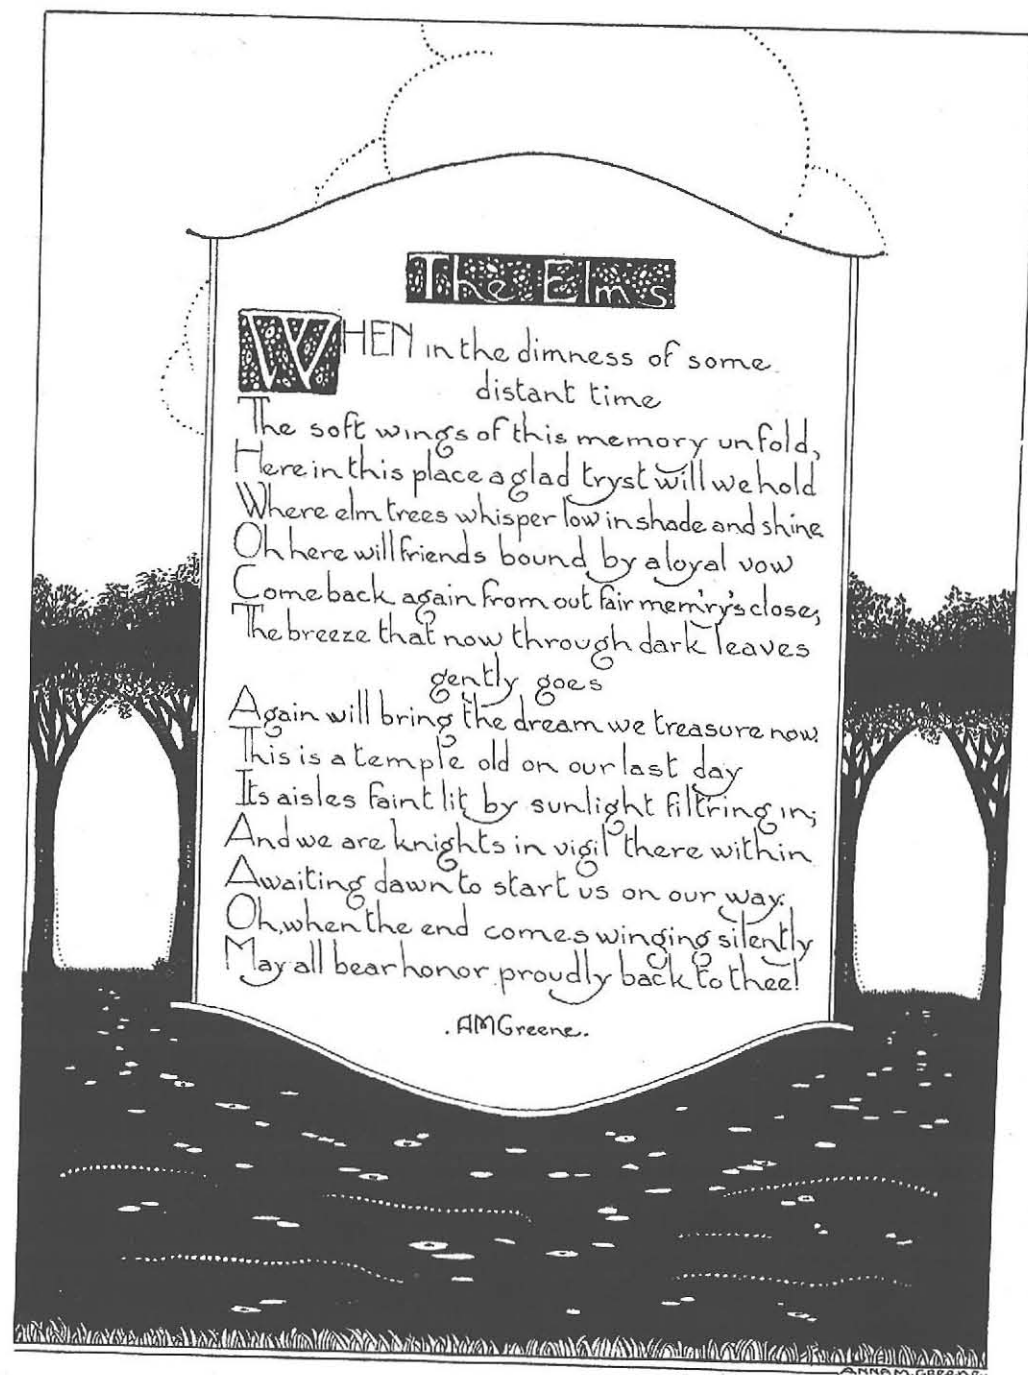 The Elms
WHEN in the dimness of some
distant time
The soft wings of this memory unfold,
Here in this place a glad tryst will we hold
Where elm trees whisper low in shade and shine
Oh here will friends bound by a loyal vow
Come back again from out fair mem'ry's close;
The breeze that now through dark leaves
gently goes
Again will bring the dream we treasure now.
This is a temple old on our last day
Its aisles faint lit by sunlight filt'ring in;
And we are knights in vigil there within
Awaiting dawn to start us on our way.
Oh, when the end comes winging silently
May all bear honor proudly back to thee!
. AMGreene.
ANNA M. GREENE.